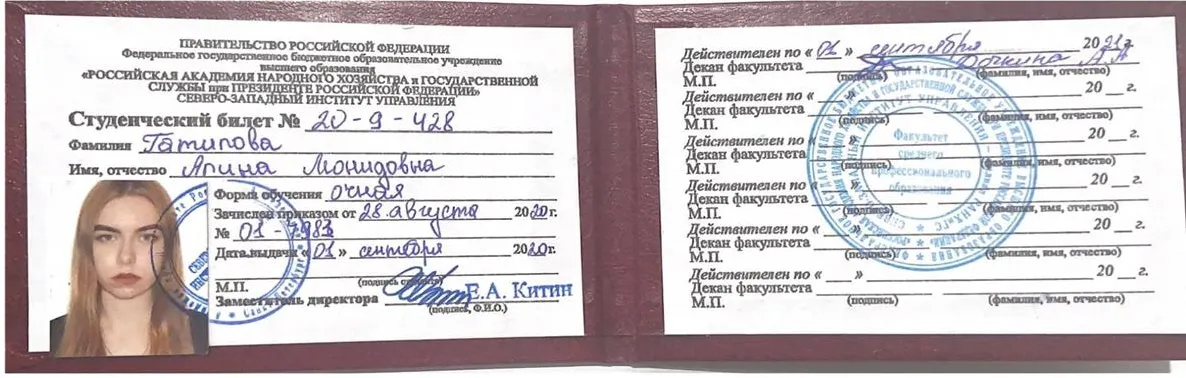 ПРАВИТЕЛЬСТВО РОССИЙСКОЙ ФЕДЕРАЦИИ
Федеральное государственное бюджетное образовательное учреждение
высшего образования
«РОССИЙСКАЯ АКАДЕМИЯ НАРОДНОГО ХОЗЯЙСТВА и ГОСУДАРСТВЕННОЙ
СЛУЖБЫ при ПРЕЗИДЕНТЕ РОССИЙСКОЙ ФЕДЕРАЦИИ»
СЕВЕРО-ЗАПАДНЫЙ ИНСТИТУТ УПРАВЛЕНИЯ
Студенческий билет № 20-9-428
Фамилия
Имя, отчество
Форма обучения очная
Зачислен приказом от 28 августа 2020г.
№ 01-7983
Дата выдачи «01» сентября 2020г.
М.П.
Заместитель директора Е.А. Китин
(подпись, Ф.И.О.)
Действителен по «01» сентября 2021г.
Декан факультета
(подпись) (фамилия, имя, отчество)
М.П.
Действителен по « » 20 г.
Декан факультета
(подпись) (фамилия, имя, отчество)
М.П.
Действителен по « » 20 г.
Декан факультета
(подпись) (фамилия, имя, отчество)
М.П.
Действителен по « » 20 г.
Декан факультета
(подпись) (фамилия, имя, отчество)
М.П.
Действителен по « » 20 г.
Декан факультета
(подпись) (фамилия, имя, отчество)
М.П.
Действителен по « » 20 г.
Декан факультета
(подпись) (фамилия, имя, отчество)
М.П.
Факультет
среднего
профессионального
образования